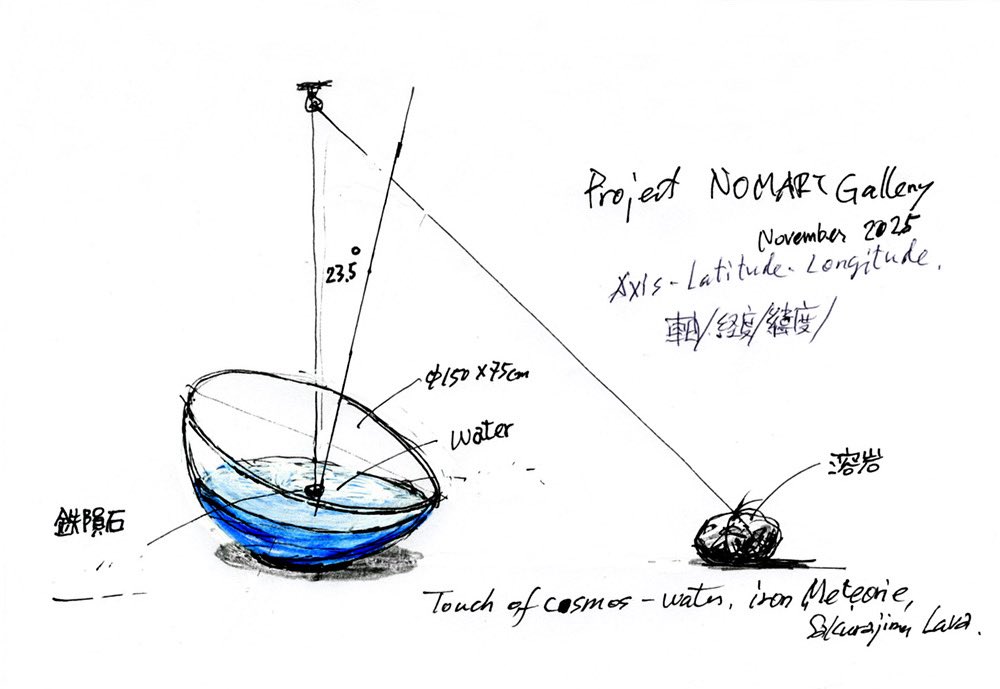 Project NOMART Gallery
November 2025
Axis - Latitude - Longitude.
軸/経度/緯度/
23.5°
φ150×75cm
Water
溶岩
鉄隕石
Touch of cosmos - water, iron Meteorie,
Sakurajima Lava.